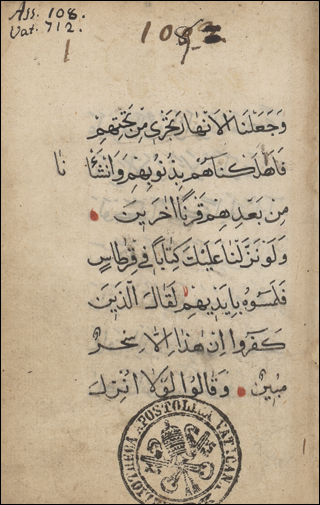 Ass. 108.
Vat. 712.
1
وَجَعَلْنَا الاَنْهَارَ تَجْرِي مِن تَحْتِهِمْ
فَاَهْلَكْنَاهُم بِذُنُوبِهِمْ وَاَنْشَاْنَا
مِن بَعْدِهِمْ قَرْنًا اٰخَرِينَ
وَلَوْ نَزَّلْنَا عَلَيْكَ كِتَابًا فِي قِرْطَاسٍ
فَلَمَسُوهُ بِاَيْدِيهِمْ لَقَالَ الَّذِينَ
كَفَرُوا اِنْ هٰذَا اِلَّا سِحْرٌ
مُبِينٌ وَقَالُوا لَوْلَا اُنْزِلَ
BIBLIOTHECA APOSTOLICA VATICANA